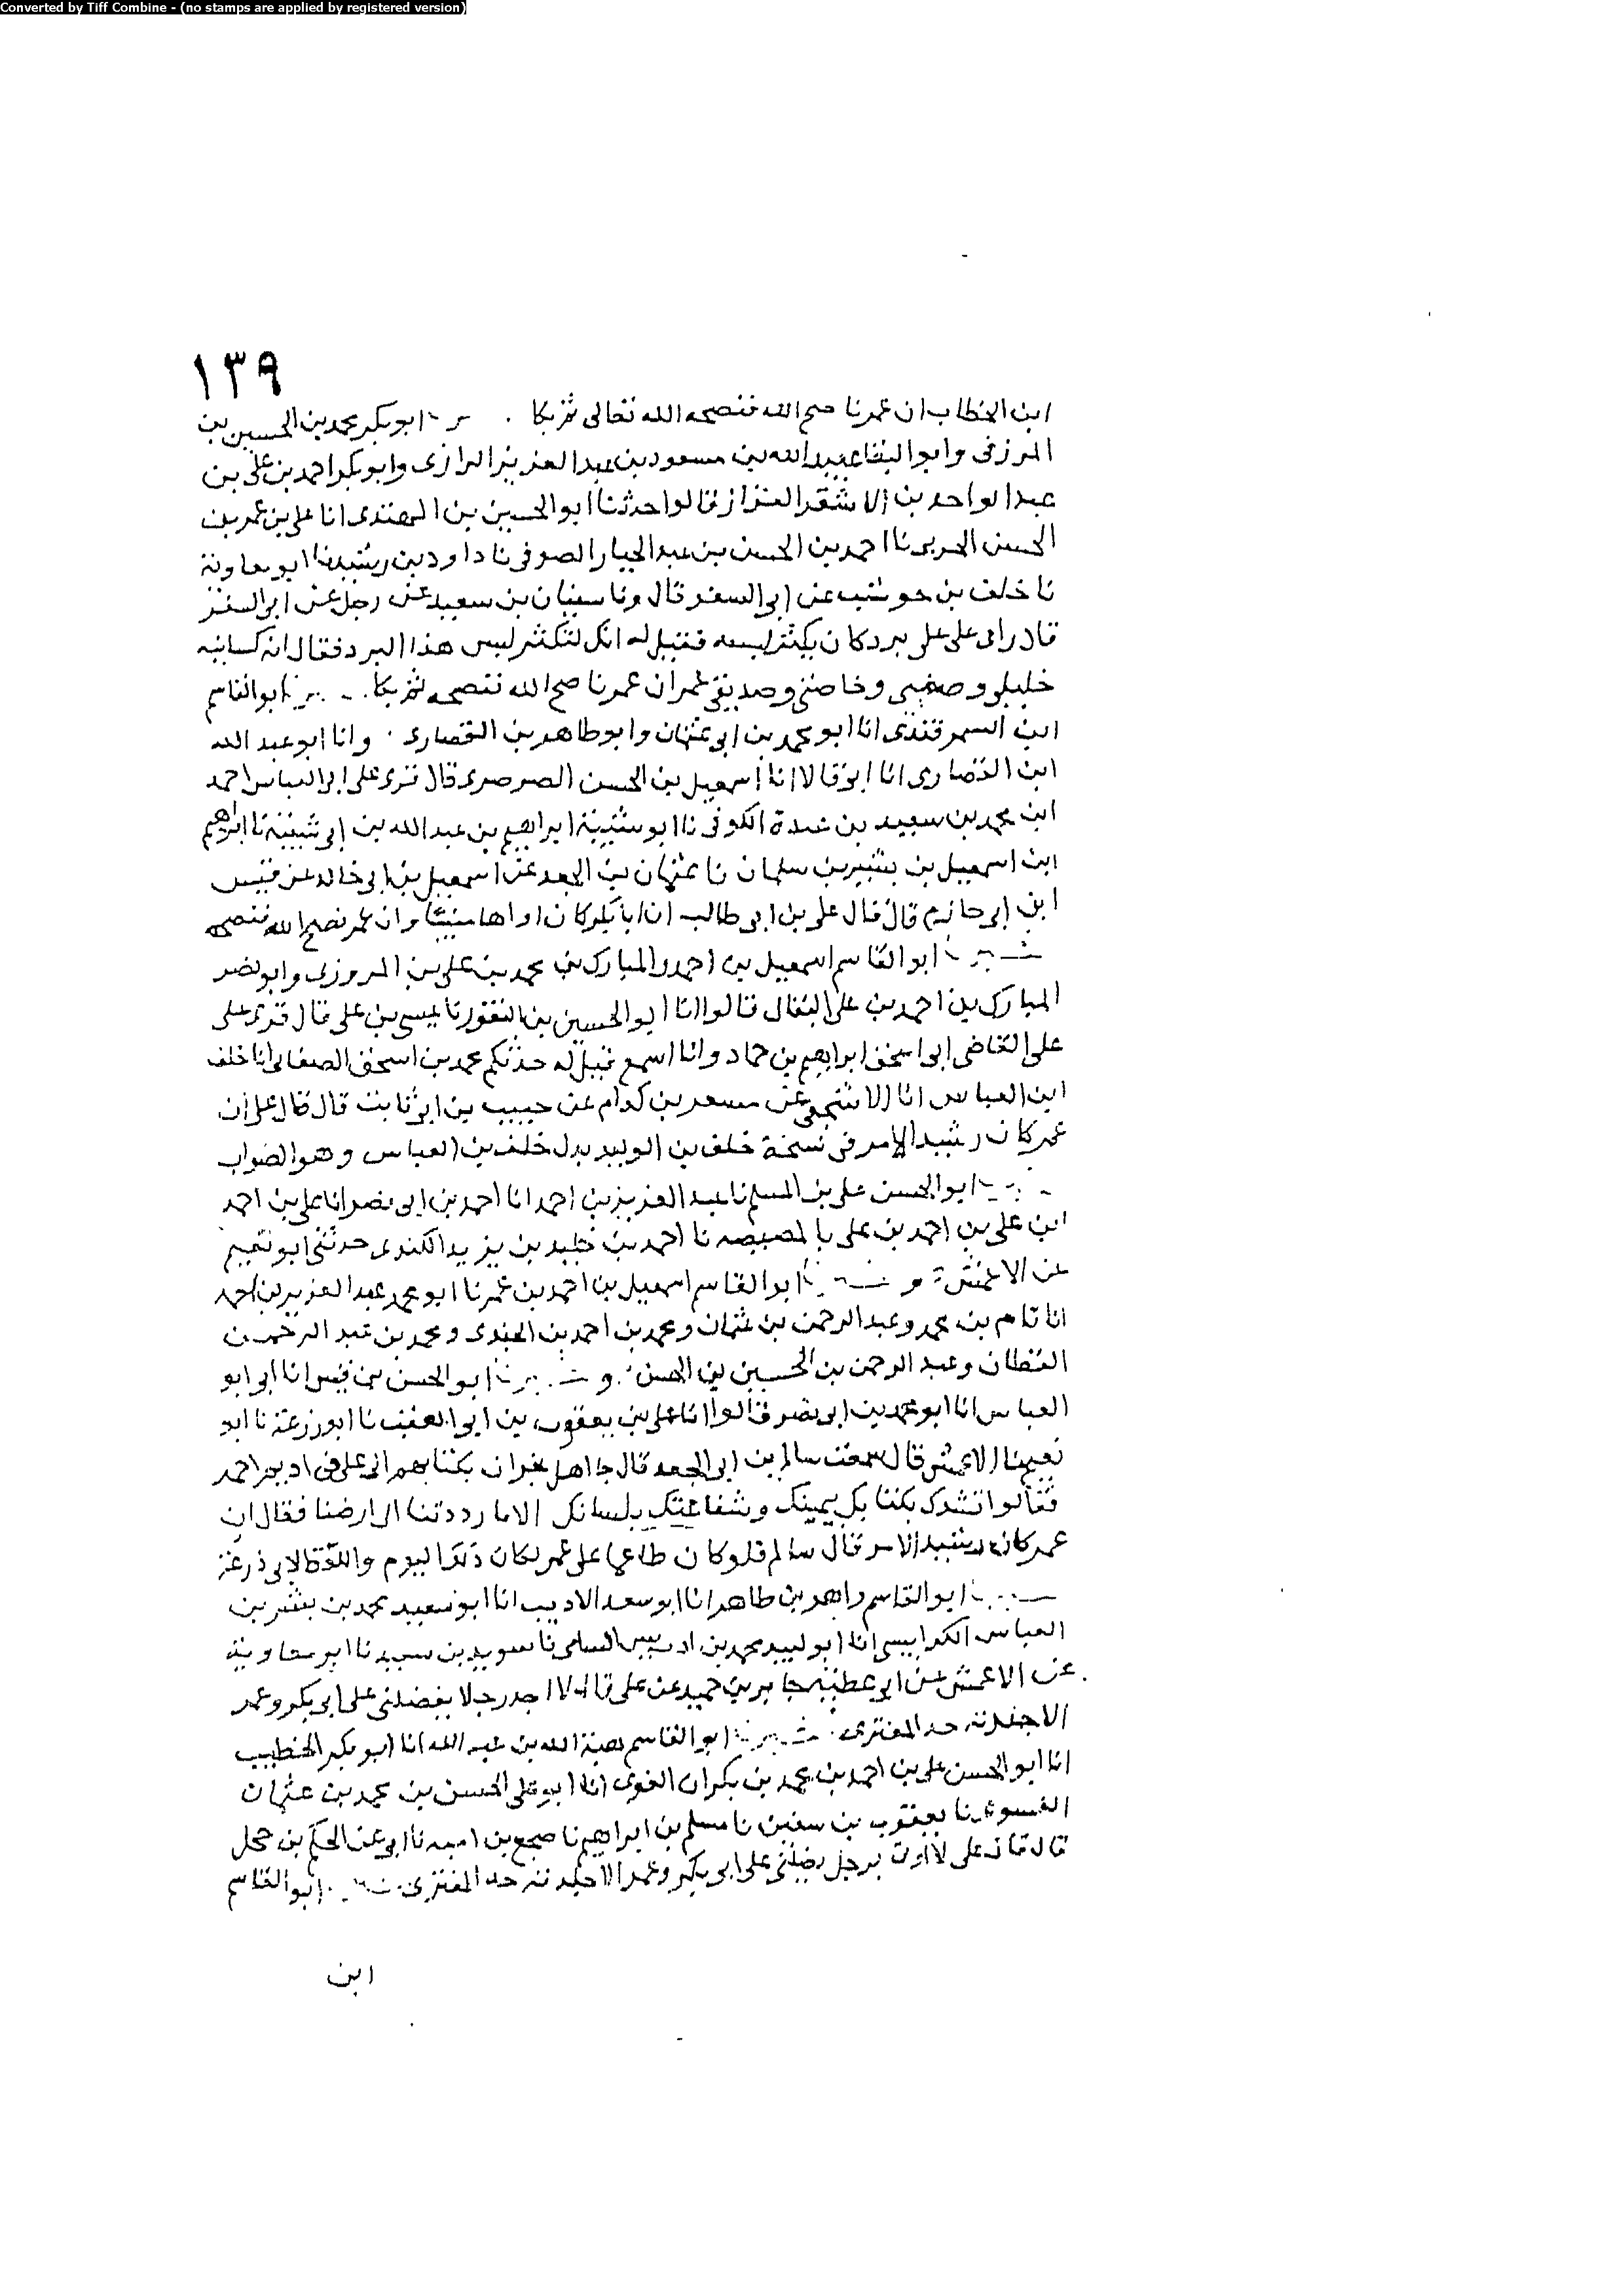 Converted by Tiff Combine - (no stamps are applied by registered version)
١٣٩
ابن الخطاب ان عمر ناصح الله فنصحه الله تعالى ثم بكا . ابو بكر محمد بن الحسين بن
المزرفى وابو البقا عبيد الله بن مسعود بن عبد العزيز الرازى وابو بكر احمد بن على بن
عبد الواحد بن الاشقر القزاز قالوا حدثنا ابو الحسين بن المهتدى انا على بن عمر بن
الحسن الحربى نا احمد بن الحسن بن عبد الجبار الصوفى نا داود بن رشيد نا ابو معاوية
نا خلف بن حوشب عن ابى السفر قال ونا سفيان بن سعيد عن رجل عن ابى السفر
قال راى على على برد كان يكثر لبسه فقيل له انك لتكثر لبس هذا البرد فقال انه كسانيه
خليلى وصفيى وخاصتى وصديقى عمر ان عمر ناصح الله فنصحه ثم بكا ابو القاسم
ابن السمرقندى انا ابو محمد بن ابى عثمان وابو طاهر بن القصارى . وانا ابو عبد الله
ابن القصارى انا ابى قالا انا اسمعيل بن الحسن الصرصرى قال قرى على ابى العباس احمد
ابن محمد بن سعيد بن عقدة الكوفى نا ابو شيبة ابراهيم بن عبد الله بن ابى شيبة نا ابراهيم
ابن اسمعيل بن بشير بن سلمان نا عثمان بن الجعد عن اسمعيل بن ابى خالد عن قيس
ابن ابى حازم قال قال على بن ابى طالب ان ابا بكر كان اواها منيبا وان عمر نصح الله فنصحه
ابو القاسم اسمعيل بن احمد والمبارك بن محمد بن على بن المروزى وابو نصر
المبارك بن احمد بن على البقال قالوا انا ابو الحسين بن النقور نا عيسى بن على قال قرى على
على القاضى ابى اسحق ابراهيم بن حماد وانا اسمع قيل له حدثكم محمد بن اسحق الصغانى انا خلف
ابن العباس انا الاشجعى عن مسعر بن كدام عن حبيب بن ابى ثابت قال قال على ان
عمر كان رشيد الامر فى نسخة خلف بن الوليد بدل خلف بن العباس وهو الصواب
ابو الحسن على بن المسلم نا عبد العزيز بن احمد انا احمد بن ابى نصر انا على بن احمد
ابن على بن احمد بن على بالمصيصه نا احمد بن خليد بن يزيد الكندى حدثنى ابو نعيم
عن الاعمش ابو القاسم اسمعيل بن احمد بن عمر نا ابو محمد عبد العزيز بن احمد
انا تمام بن محمد وعبد الرحمن بن عثمان ومحمد بن احمد بن الجندى ومحمد بن عبد الرحمن
القطان وعبد الرحمن بن الحسين بن الحسن . و ابو الحسن بن قبيس انا ابى ابو
العباس انا ابو محمد بن ابى نصر قالوا انا على بن يعقوب بن ابى العقب نا ابو زرعة نا ابو
نعيم نا الاعمش قال سمعت سالم بن ابى الجعد قال جا اهل نجران بكتابهم الى على فى اديم احمر
فقالوا ننشدك بكتابك بيمينك وشفاعتك بلسانك الا ما رددتنا الى ارضنا فقال ان
عمر كان رشيد الامر قال سالم فلو كان طاعنا على عمر لكان ذلك اليوم واللفظ لابى زرعة
ابو القاسم زاهر بن طاهر انا ابو سعد الاديب انا ابو سعيد محمد بن بشر بن
العباس الكرابيسى انا ابو لبيد محمد بن ادريس السامى نا سويد بن سعيد نا ابو معاوية
عن الاعمش عن ابى عطية جابر بن حميد عن على قال لا اجد رجلا يفضلنى على ابى بكر وعمر
الا جلدته حد المفترى . ابو القاسم هبة الله بن عبد الله انا ابو بكر الخطيب
انا ابو الحسن على بن احمد بن محمد بن بكران الفوى انا ابو على الحسن بن محمد بن عثمان
الفسوى نا يعقوب بن سفين نا مسلم بن ابراهيم نا مجمع بن اميه نا ابى عن الحكم بن جحل
قال قال على لا اوتى برجل فضلنى على ابى بكر وعمر الا جلدته حد المفترى ابو القاسم
ابن